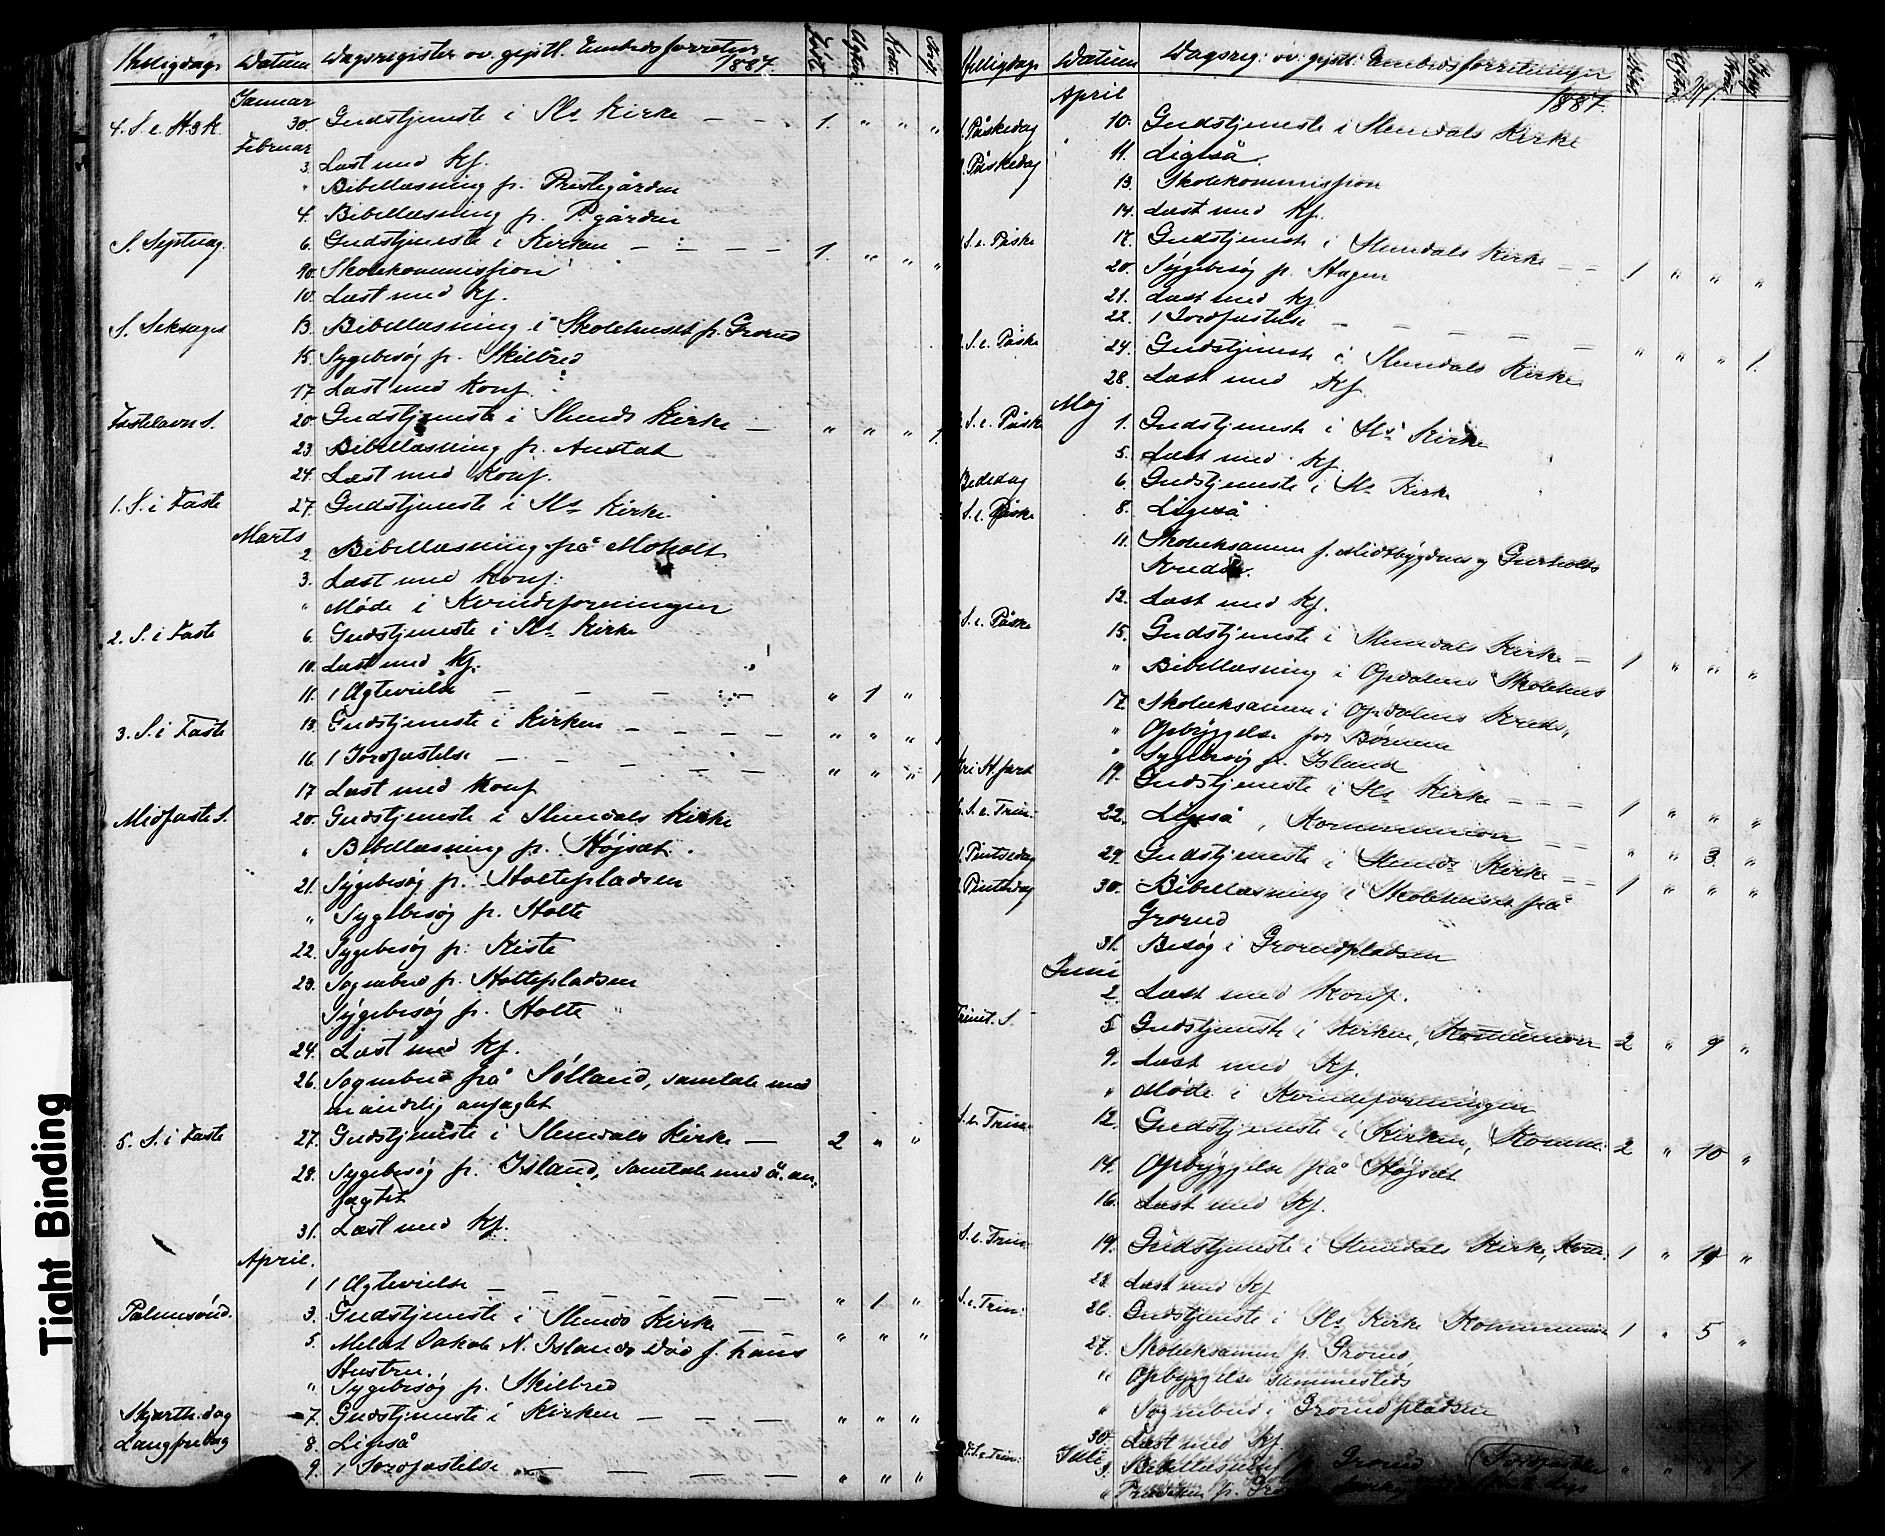 Helligdage Datum Dagsregister ov. gejstl. Embedsforretn. 1887. Døbt
Januar
4. S. e. H3K. 30. Gudstjeneste i Sls Kirke — — 1. " " "
Februar
3. Læst med Kf.
" Bibellæsning p. Prestegården
4. Bibellæsning p. P.gården
S. Septuag. 6. Gudstjeneste i Kirken — — — — 1. " " "
10. Skolekommission
10. Læst med Kf.
S. Seksages 13. Bibellæsning i Skolehuset p. Grorud
15. Sygebesøg p. Skilbred
17. Læst med Konf.
Fastelavn S. 20. Gudstjeneste i Slemds Kirke — " " " 1
23. Bibellæsning p.
24. Læst med Konf.
1. S. i Faste 27. Gudstjeneste i Sls Kirke.
Marts
2. Bibellæsning på Moholt
3. Læst med Konf:
" Møde i Kvindeforeningen
2. S. i Faste 6. Gudstjeneste i Sls Kirke
10. Læst med Kf.
11. 1 Ægtevielse — — — — " 1 "
3. S. i Faste 13. Gudstjeneste i Kirken — — — — " " "
16 1 Jordfæstelse — — — — — " " " 1
17 Læst med Konf
Midfaste S. 20. Gudstjeneste i Slemdals Kirke
" Bibellæsning p. Højsæt.
21. Sygebesøg p. Holtepladsen
" Sygebesøg p. Holte
22. Sygebesøg p. Kiste
23. Sognebud p. Holtepladsen
Sygebesøg p. Holte
24. Læst med Kf.
26. Sognebud på Sølland, samtale med
en åndelig anfægtet
5. S. i Faste 27. Gudstjeneste i Slemdals Kirke — 2 " "
28. Sygebesøg p. Island, samtale med å. an-
fægtet
31. Læst med Kf.
April.
1 1 Ægtevielse — — — — — — " 1 "
Palmesønd. 3. Gudstjeneste i Slemds Kirke — " " "
5. Meldt Jakob N. Islands Død f. hans
Hustru.
" Sygebesøg p. Skilbred
Skjærth. dag 7. Gudstjeneste i Kirken — — — " " "
Langfredag 8. Ligeså
9. 1 Jordfæstelse — — — — — " " "
Helligdage Datum Dagsreg: ov. gejstl: Embedsforretninger 1887. 241.
April
1. Påskedag 10. Gudstjeneste i Slemdals Kirke
2. Påskedag 11. Ligeså.
13. Skolekommission
14. Læst med Kf.
S. e. Påske 17. Gudstjeneste i Slemdals Kirke — — 1 " " "
20. Sygebesøg p. Hagen
21. Læst med Kf.
22. 1 Jordfæstelse — — — — — " " " 1.
S. e. Påske 24. Gudstjeneste i Slemdals Kirke
28. Læst med Kf.
Maj
S. e. Påske 1. Gudstjeneste i Sls Kirke
5. Læst med Kf.
Bededag 6. Gudstjeneste i Sls Kirke
S. e. Påske 8. Ligeså
11. Skoleeksamen f. Midtbygdens og Gurholts
Kredse.
12. Læst med Kf.
S. e. Påske 15. Gudstjeneste i Slemdals Kirke — 1 " " "
" Bibellæsning i Opdalens Skolehus
17. Skoleeksamen i Opdalens Kreds,
" Opbyggelse for Børnene
" Sygebesøg p. Island
Kri H. fart 19. Gudstjeneste i Sls Kirke — — — 1 " " "
S. e. 22. Ligeså, Kommunion — — " " 3. "
1. Pintsedag 29. Gudstjeneste i Slemds Kirke — — 1 " " "
2. Pintsedag 30. Bibellæsning i Skolehuset på
Grorud
31. Besøg i Grorudpladsen
Juni
2. Læst med Konf.
Trinit. S. 5 Gudstjeneste i Kirken, Kommunion 2 " 9 "
9. Læst med Kf.
" Møde i Kvindeforeningen
S. e. Trin. 12. Gudstjeneste i Kirken, Komm. 2 " 10 "
14. Opbyggelse på Højsæt
16. Læst med Kf.
S. e. Trin. 19. Gudstjeneste i Slemdals Kirke, Kom. 1 " "
23. Læst med Kf
S. e. Trin: 26. Gudstjeneste i Sls Kirke Kommunion 1 " 5 "
27. Skoleeksamen p. Grorud
" Opbyggelse sammesteds
" Sognebud i Grorudpladsen
30. Læst med Kf
S. e. Trin: Juli 3. Bibellæsning p. Grorud (Jordfæstelse " " " 1
Tight Binding